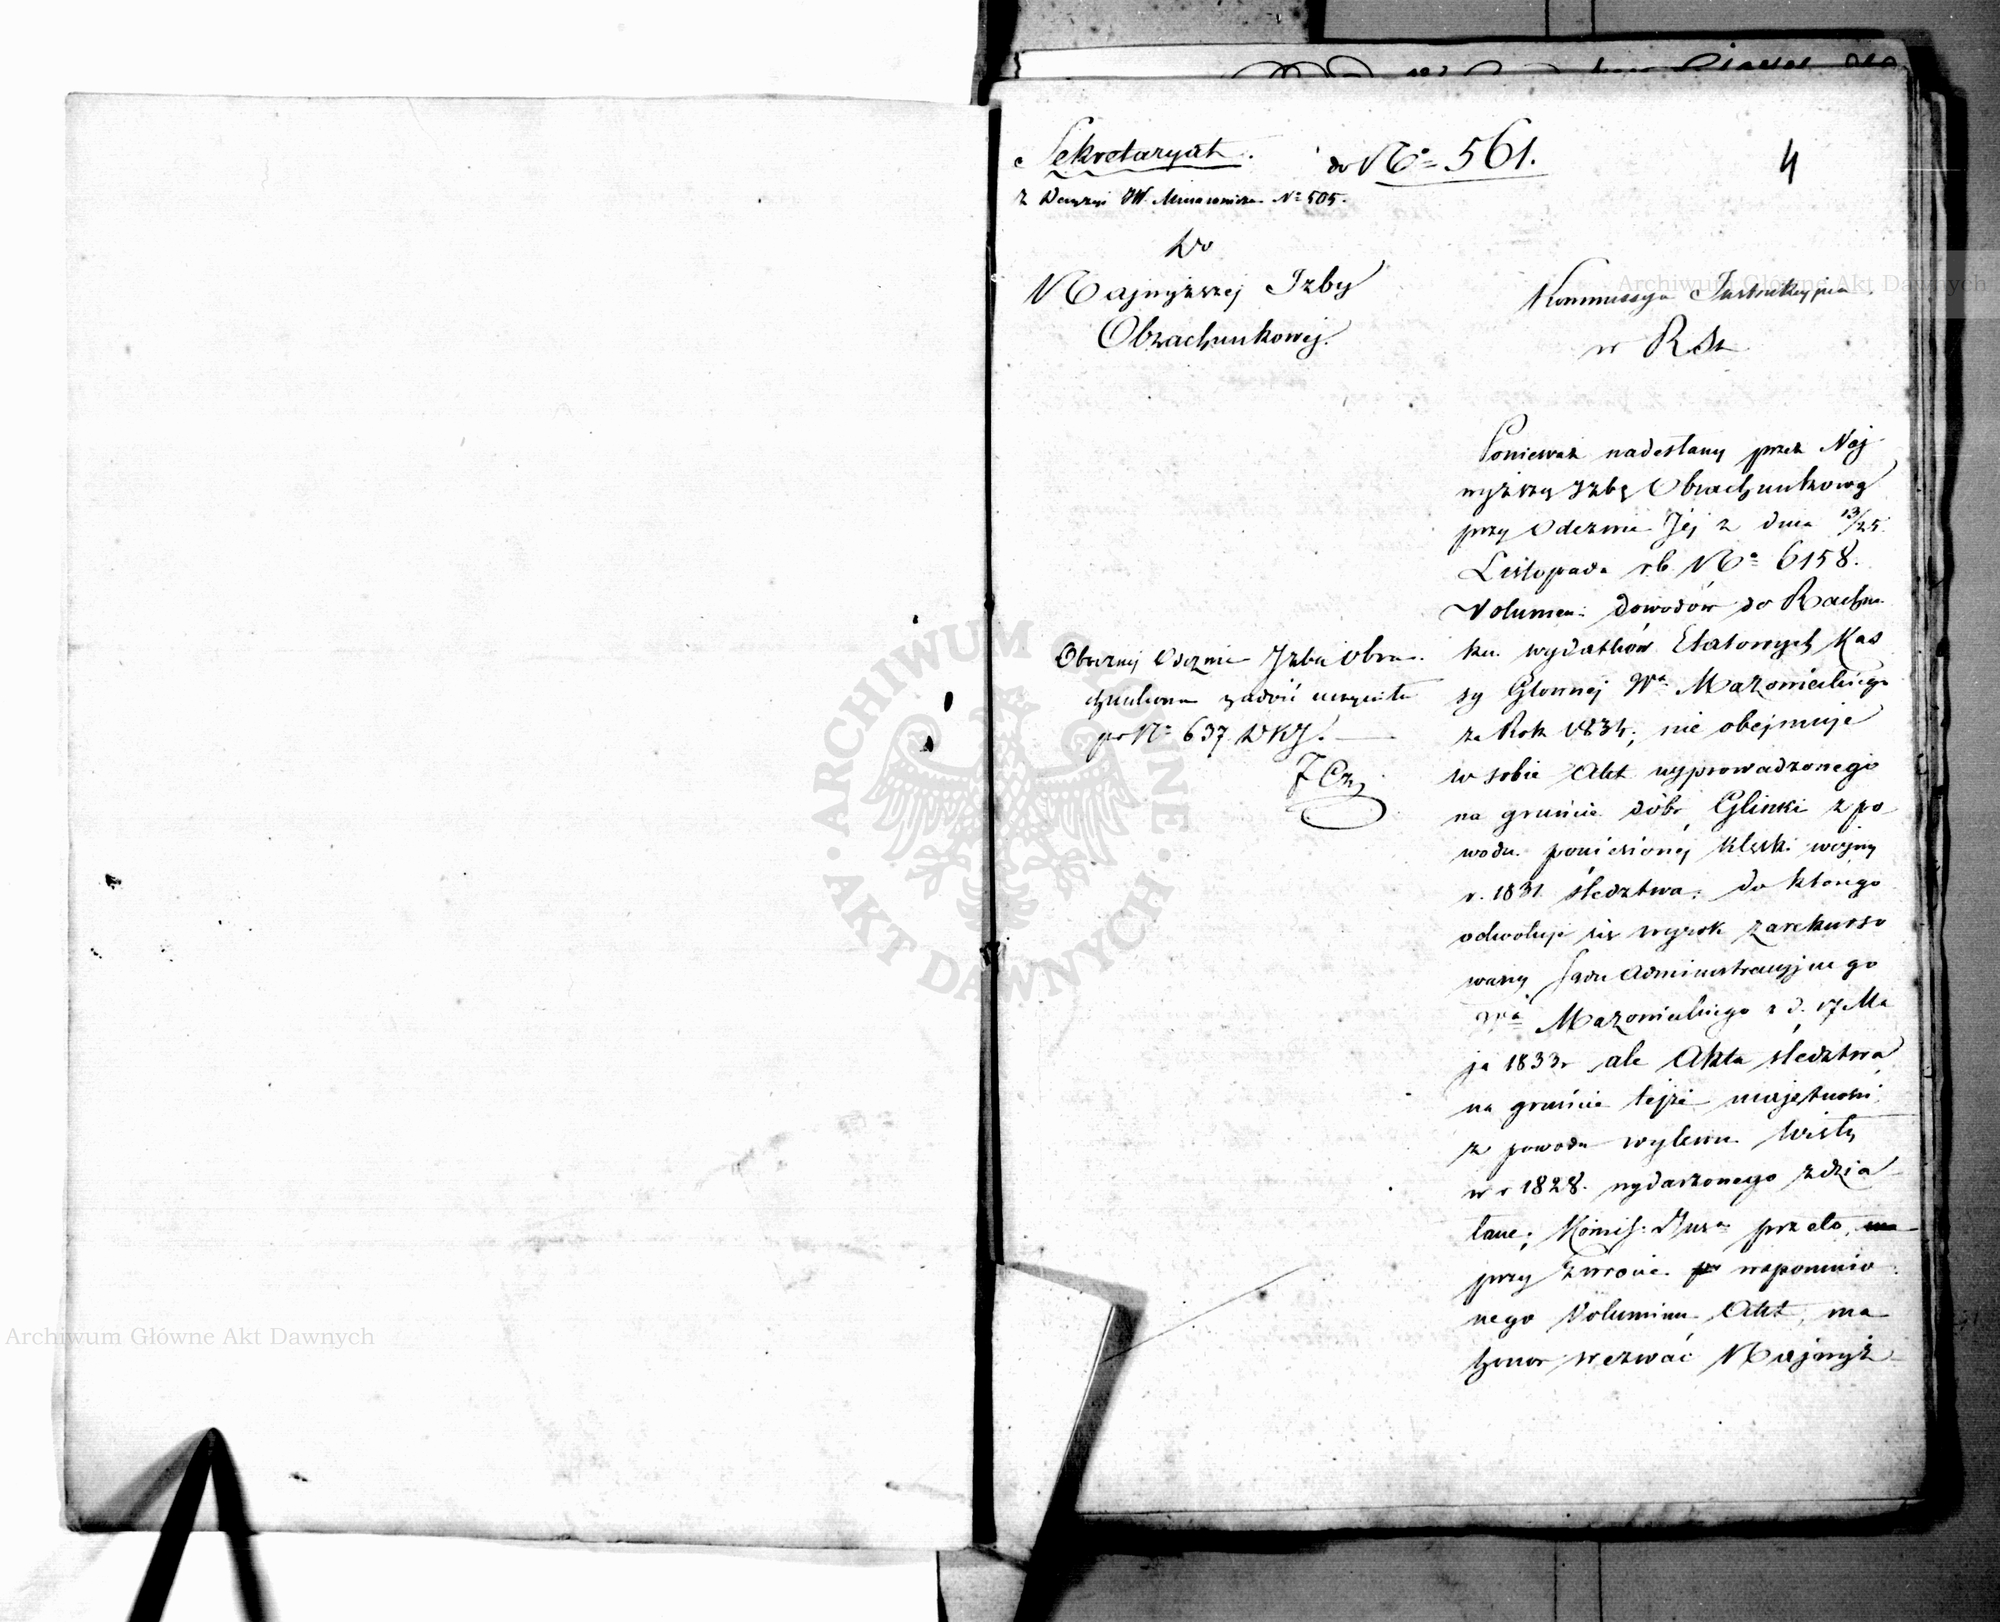 Sekretaryat.
do No 561.
4
z Decyzyi JW. No 505.
Do
Najwyższej Izby
Obrachunkowej.
Kommissya Instrukcyjna
w RSt
Ponieważ nadesłany przez Naj
wyższą Izbę Obrachunkową
przy Odezwie Jéj z dnia 13/25
Listopada r.b. No 6158.
Volumen dowodów do Rachun
ku wydatków Etatowych Kas
sy Głównej Wa Mazowieckiego
za Rok 1834, nie obejmuje
w sobie Akt wyprowadzonego
na gruncie dóbr Glinki z po
wodu poniesionéj klęski wojny
r. 1831 śledztwa, do którego
odwołuje się wyrok zarekurso
wany Sądu Administracyjnego
Wa Mazowieckiego z d. 17 Ma
ja 1833r ale Akta śledztwa
na gruncie tejże majętności
z powodu wylewu Wisły
w r 1828. wydarzonego zdzia
łane; Komiss. przeto,
przy zwrocie wspomnio
nego Voluminu Akt, ma
honor wezwać Najwyż
Obocznej Odezwie Izba Obra
chunkowa zadość uczyniła
po No 637 DKJ.
Archiwum Główne Akt Dawnych
ARCHIWUM GŁÓWNE · AKT DAWNYCH ·
Archiwum Główne Akt Dawnych